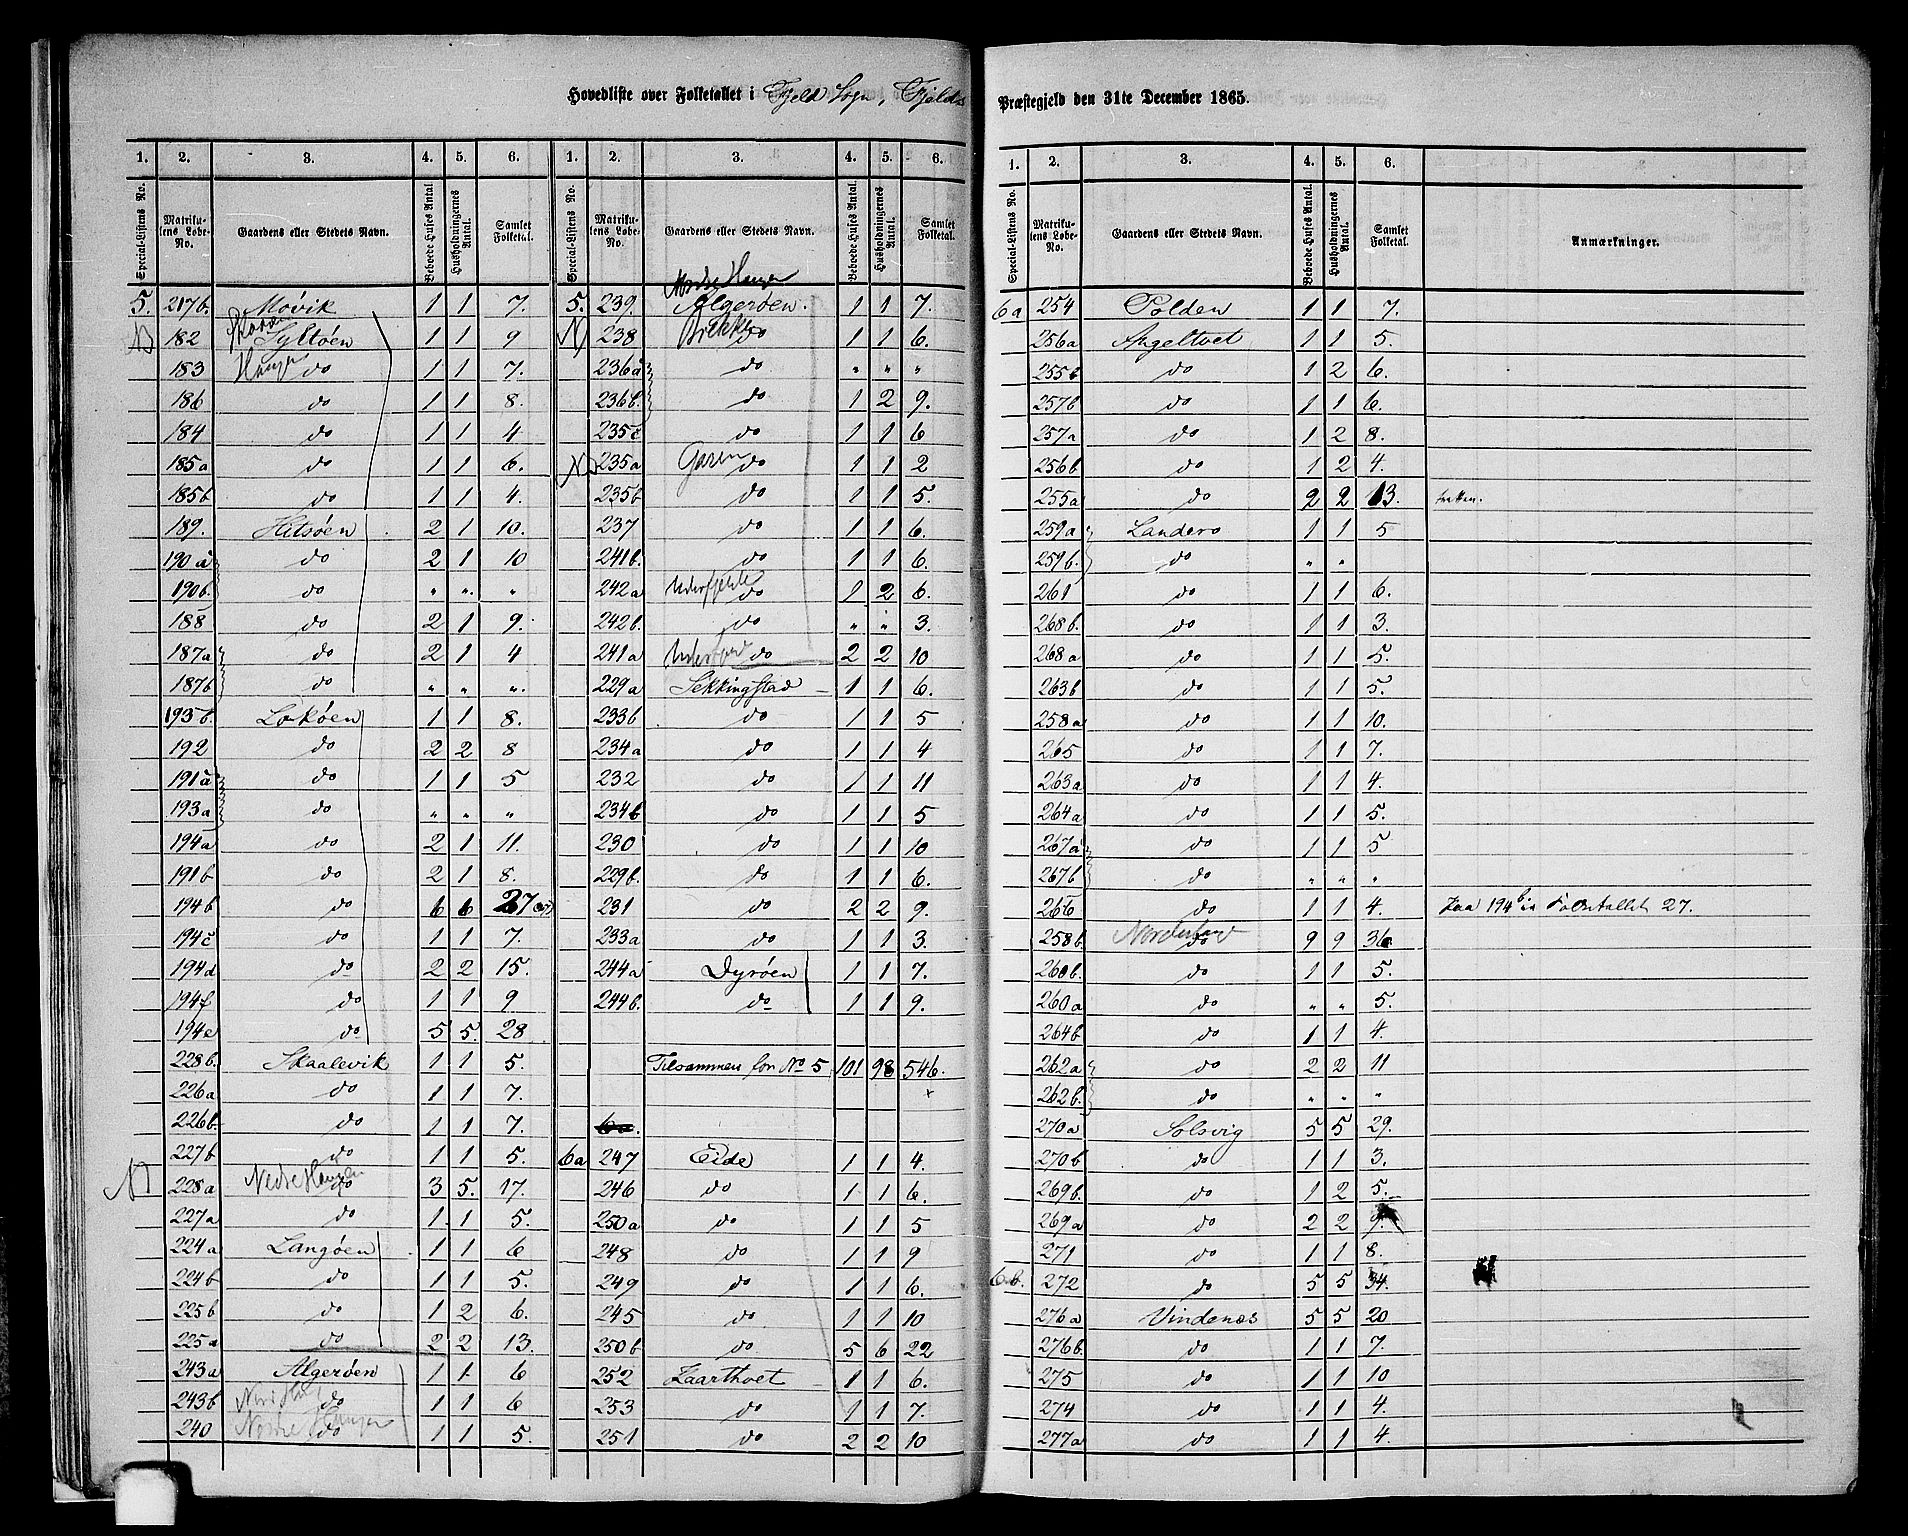 Hovedliste over Folketallet i Fjeld Sogn, Fjelds
Præstegjeld den 31te December 1865.
1. 2. 3. 4. 5. 6. 1. 2. 3. 4. 5. 6.
Special-Listens No. Matrikulens Løbe-No. Gaardens eller Stedets Navn. Beboede Huses Antal. Husholdningernes Antal. Samlet Folketal. Special-Listens No. Matrikulens Løbe-No. Gaardens eller Stedets Navn. Beboede Huses Antal. Husholdningernes Antal. Samlet Folketal.
5. 217b. Movik 1 1 7.
182 Syltøen 1 1 9
183 do 1 1 7.
186 do 1 1 8.
184 do 1 1 4
185a do 1 1 6.
185b do 1 1 4.
189. Hitsøen 2 1 10.
190a do 2 1 10
190b. do " " "
188 do 2 1 9.
187a do 2 1 4
187b do " " "
193b. Lokøen 1 1 8.
192 do 2 2 8
191a do 1 1 5
193a do " " "
194a do 2 1 11.
191b do 2 1 8.
194b do 6 6 27
194c do 1 1 7.
194d do 2 2 15.
194f do 1 1 9
194e do 5 5. 28
228b. Skaalevik 1 1 5.
226a do 1 1 7.
226b. do 1 1 7.
227b do 1 1 5.
228a Nedre Haugen do 3 5. 17.
227a do 1 1 5.
224a Langøen 1 1 6
224b do 1 1 5.
225b do 1 2 6.
225a do 2 2 13.
243a Algerøen 1 1 6
243b do 1 1 6
240 do 1 1 5.
Nordre Hauge
5. 239. Algerøen. 1 1 7.
238 Brekke do 1 1 6.
236a do " " "
236b. do 1 2 9.
235c do 1 1 6
235a Gasen do 1 1 2
235b do 1 1 5.
237 do 1 1 6.
241b. do 1 1 6.
242a do 1 2 6.
242b. do " " 3.
241a do 2 2 10
229a Sekkingstad 1 1 6.
233b do 1 1 5
234a do 1 1 4
232 do 1 1 11
234b do 1 1 5
230 do 1 1 10
229b. do 1 1 6.
231 do 2 2 9.
233a do 1 1 3.
244a Dyrøen 1 1 7.
244b. do 1 1 9.
Tilsammen for No 5 101 98 546.
6a 247 Eide 1 1 4.
246 do 1 1 6.
250a do 1 1 5
248 do 1 1 9
249 do 1 1 6.
245 do 1 1 10
250b do. 5 6 22
252 Kaartvet 1 1 6.
253 do 1 1 7.
251 do 2 2 10
1. 2. 3. 4. 5. 6.
Special-Listens No. Matrikulens Løbe-No. Gaardens eller Stedets Navn. Beboede Huses Antal. Husholdningernes Antal. Samlet Folketal. Anmærkninger.
6a 254 Polden 1 1 7.
256a Angeltvet 1 1 5.
255b do 1 2 6.
257b do 1 1 6.
257a do 1 2 8.
256b do 1 2 4.
255a do 2 2 13. tretten.
259a Landero 1 1 5
259b. do " "
261 do 1 1 6.
268b. do 1 1 3.
268a do 1 1 5.
263b do 1 1 5.
258a do 1 1 10.
265 do 1 1 7.
263a do 1 1 4.
264a do 1 1 5.
267a do 1 1 5
267b do " " "
266 do 1 1 4. Paa 194b er Folketallet 27.
258b. do 9 9 36
260b. do 1 1 5.
260a do " " 5.
264b do 1 1 4.
262a do 2 2 11
262b. do " " "
270a Solsvig 5 5 29.
270b do 1 1 3.
269b. do 1 2 5.
269a do 2 2 9.
271 do 1 1 8.
6.b. 272 do 5 5 34.
276a Vindenæs 5 5 20
276b. do 1 1 7.
275 do 1 1 10
274 do 1 1 4.
277a do 1 1 4.